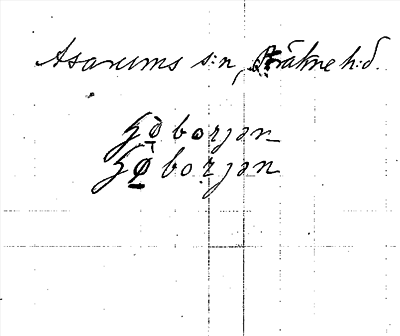 Asarums s:n, Bräkne h:d.
borjən
borjən